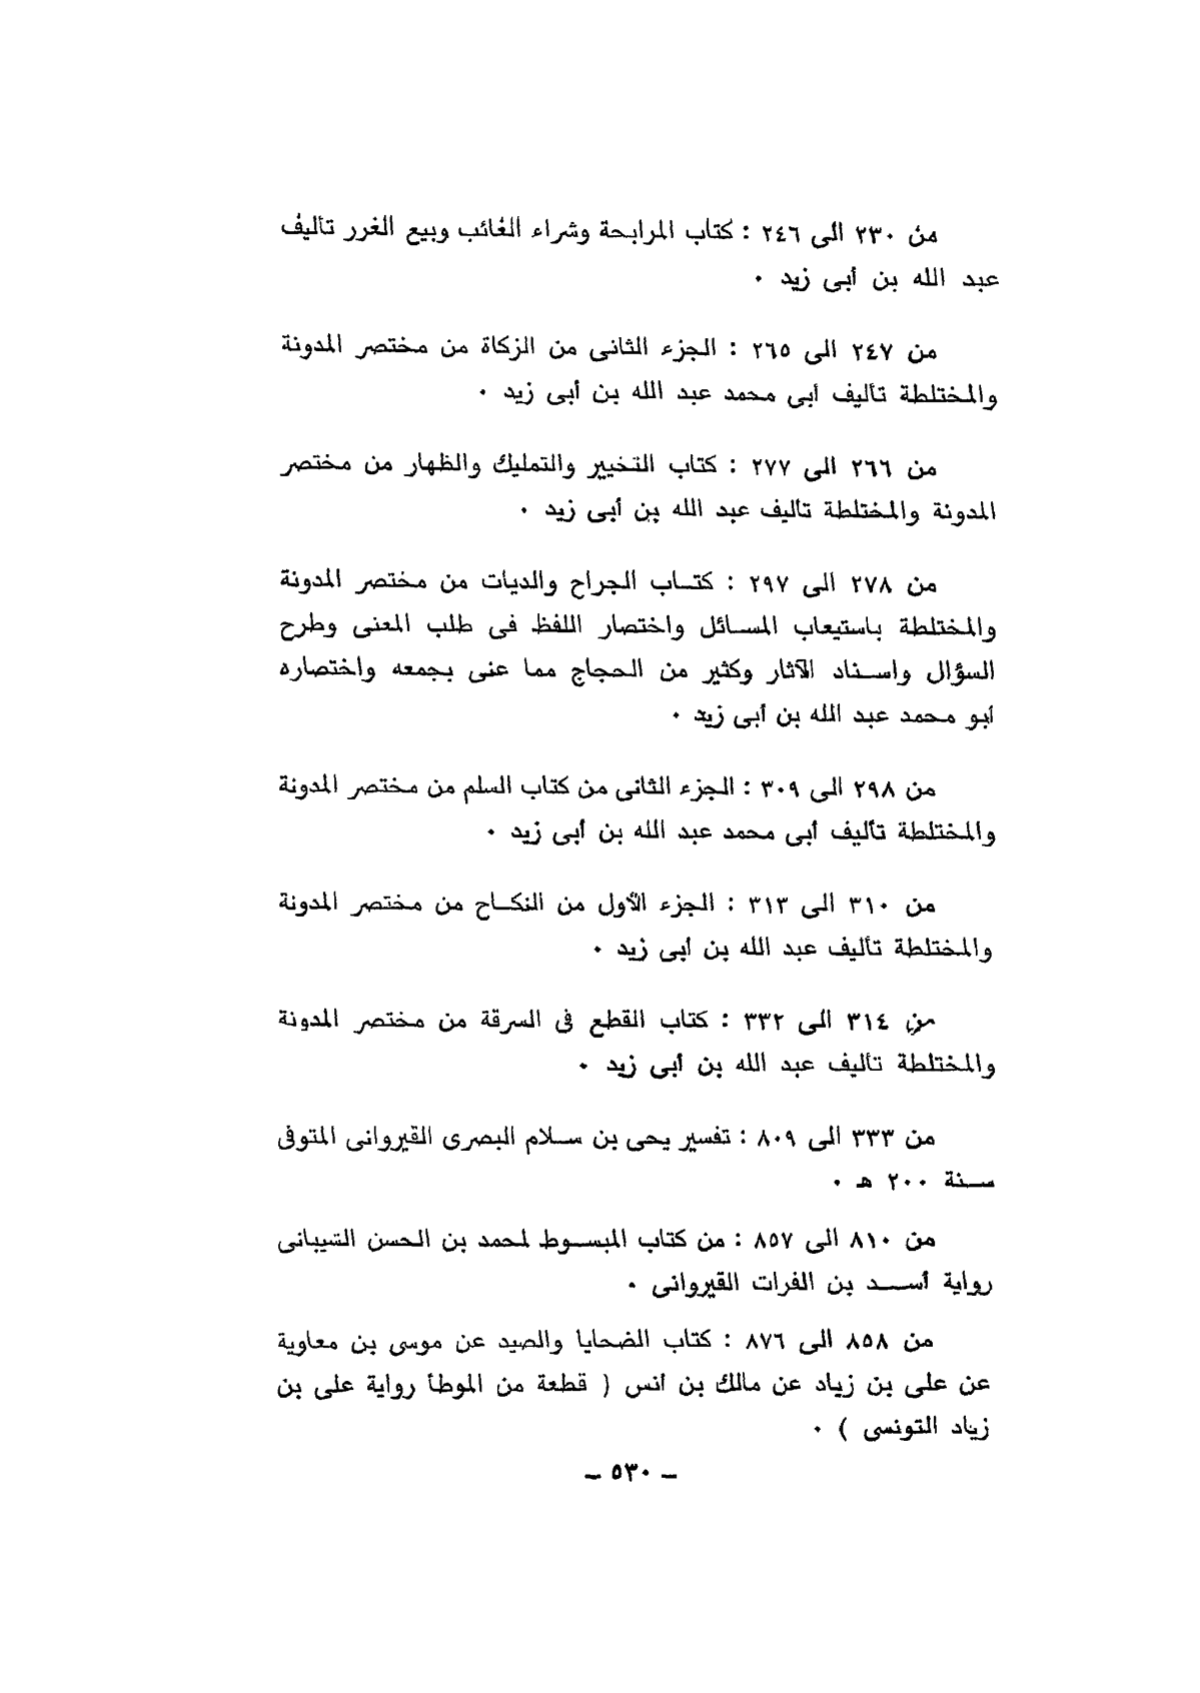 من ٢٣٠ الى ٢٤٦ : كتاب المرابحة وشراء الغائب وبيع الغرر تأليف
عبد الله بن أبى زيد ٠
من ٢٤٧ الى ٢٦٥ : الجزء الثانى من الزكاة من مختصر المدونة
والمختلطة تأليف أبى محمد عبد الله بن أبى زيد ٠
من ٢٦٦ الى ٢٧٧ : كتاب التخيير والتمليك والظهار من مختصر
المدونة والمختلطة تأليف عبد الله بن أبى زيد ٠
من ٢٧٨ الى ٢٩٧ : كتــاب الجراح والديات من مختصر المدونة
والمختلطة باستيعاب المســائل واختصار اللفظ فى طلب المعنى وطرح
السؤال واســناد الآثار وكثير من الحجاج مما عنى بجمعه واختصاره
أبو محمد عبد الله بن أبى زيد ٠
من ٢٩٨ الى ٣٠٩ : الجزء الثانى من كتاب السلم من مختصر المدونة
والمختلطة تأليف أبى محمد عبد الله بن أبى زيد ٠
من ٣١٠ الى ٣١٣ : الجزء الأول من النكــاح من مختصر المدونة
والمختلطة تأليف عبد الله بن أبى زيد ٠
من ٣١٤ الى ٣٣٢ : كتاب القطع فى السرقة من مختصر المدونة
والمختلطة تأليف عبد الله بن أبى زيد ٠
من ٣٣٣ الى ٨٠٩ : تفسير يحى بن ســلام البصرى القيروانى المتوفى
ســنة ٢٠٠ هـ ٠
من ٨١٠ الى ٨٥٧ : من كتاب المبســوط لمحمد بن الحسن الشيبانى
رواية أســـد بن الفرات القيروانى ٠
من ٨٥٨ الى ٨٧٦ : كتاب الضحايا والصيد عن موسى بن معاوية
عن على بن زياد عن مالك بن أنس ( قطعة من الموطأ رواية على بن
زياد التونسى ) ٠
– ٥٣٠ –